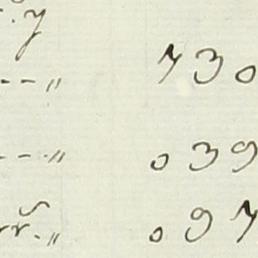 -- " 730
-- " 039
" 097